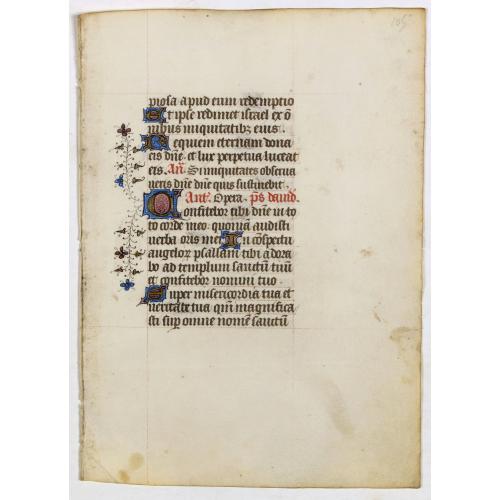 105
piosa apud eum redemptio
Et ipse redimet israel ex o
nibus iniquitatibȝ eius.
Requiem eternam dona
eis dn̄e et lux perpetua luceat
eis. Añ. Si iniquitates observa
veris dn̄e dn̄e quis sustinebit
Ant. Opera. ps̄ david.
Confitebor tibi dn̄e in to
to corde meo quoniā audisti
verba oris mei In ɔspectu
angeloꝝ psallam tibi adora
bo ad templum sanctū tuū
et confitebor nomini tuo.
Super misericordia tua et
veritate tua qm̄ magnifica
sti sup̄ omne nomē sanctū